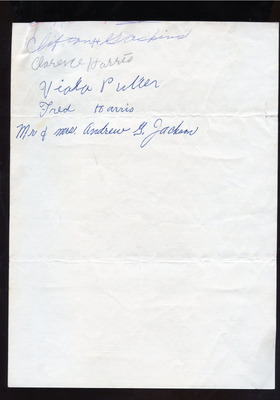 Clifton H. Gaskins
Clarence Harris
Viola Puller
Fred Harris
Mr & Mrs. Andrew G. Jackson